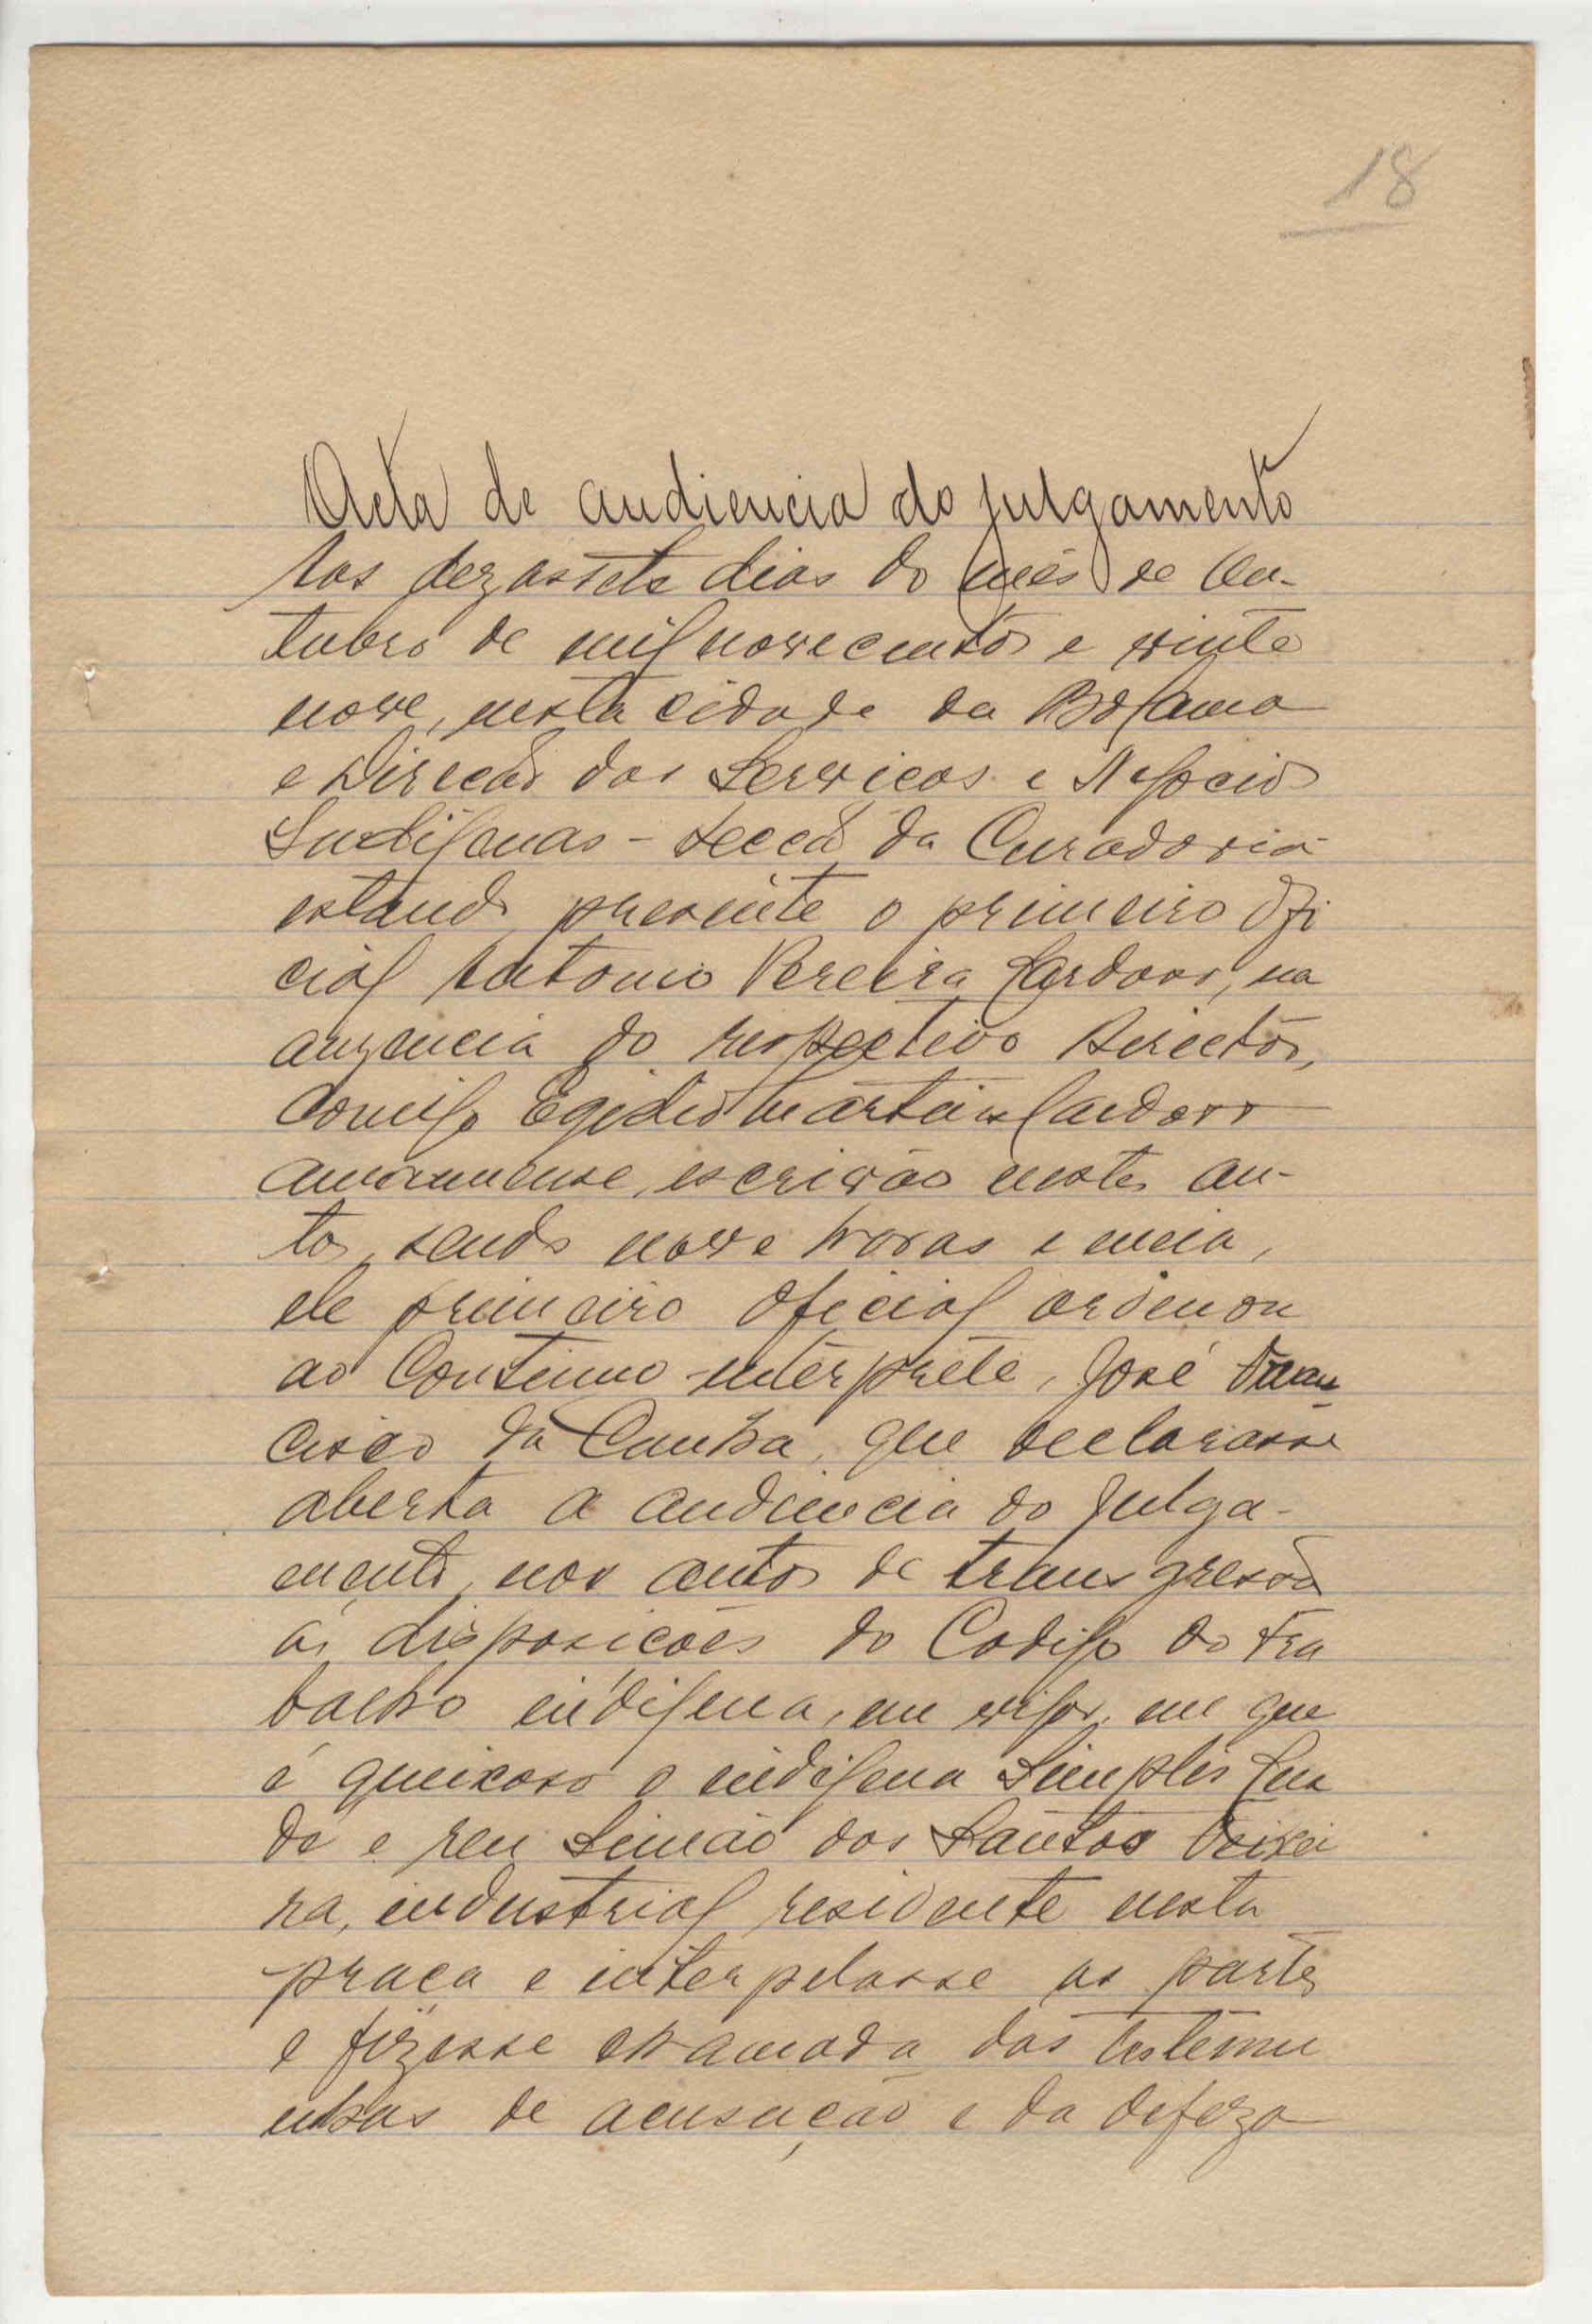 18
Acta de audiencia do julgamento
Aos dezassete dias do mês de Ou-
tubro de mil novecentos e vinte
nove, nesta cidade da Bolama
e Direcão dos Serviços e Negocios
Indigenas - Seccão da Curadoria
estando presente o primeiro Ofi
cial Antonio Pereira Cardoso, na
auzencia do respectivo Director,
comigo Egidio Martins Cardoso
amanuense, escrivão nestes au-
tos, sendo nove horas e meia,
ele primeiro oficial ordenou
ao Continuo-intérprete, José Fran
cisco da Cunha, que declarasse
aberta a audiencia do julga-
mento, nos autos de transgressão
ás disposicões do Codigo do Tra
balho indigena, em vigor, em que
é queixoso o indigena Simples
do e reu Simão dos Santos Teixei
ra, industrial residente nesta
praca e interpelasse as partes
e fizesse chamada das testemu
nhas de acusação e da defeza